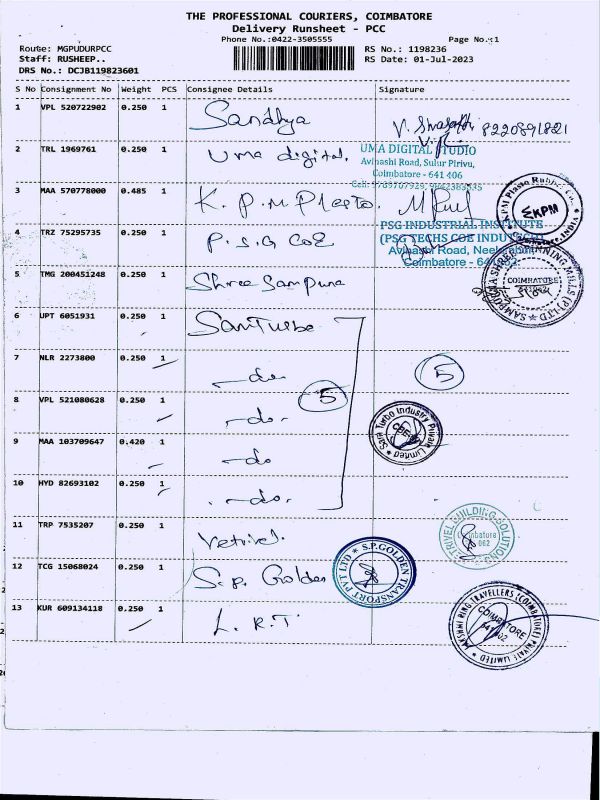 THE PROFESSIONAL COURIERS, COIMBATORE
Delivery Runsheet - PCC
Phone No.:0422-3505555
Page No.:1
Route: MGPUDURPCC
RS No.: 1198236
Staff: RUSHEEP..
RS Date: 01-Jul-2023
DRS No.: DCJB119823601
S No Consignment No Weight PCS Consignee Details Signature
1 VPL 520722902 0.250 1 Sandhya
8220891821
2 TRL 1969761 0.250 1 Uma digital.
UMA DIGITAL STUDIO
Avinashi Road, Sulur Pirivu,
Coimbatore - 641 406
3 MAA 570778000 0.485 1 K. P. M Plasto.
KPM
4 TRZ 75295735 0.250 1 P.S.G COE
PSG INDUSTRIAL INSTITUTE
(PSG TECHS COE INDUTECH)
Avinashi Road,
Coimbatore -
5 TMG 200451248 0.250 1 Shree Sampurna
COIMBATORE
SPINNING MILLS (P) LTD
6 UPT 6051931 0.250 1 San Turbo
7 NLR 2273800 0.250 1 -do-
5 5
8 VPL 521080628 0.250 1 -do-
Sani Turbo Industry Private Limited
9 MAA 103709647 0.420 1 -do-
10 HYD 82693102 0.250 1 -do-
11 TRP 7535207 0.250 1 Vetrivel.
VETRIVEL BUILDING SOLUTIONS
12 TCG 15068024 0.250 1 S.P. Golden
S.P.GOLDEN TRANSPORT PVT LTD
13 KUR 609134118 0.250 1 L.R.T
LAKSHMI RING TRAVELLERS (COIMBATORE) PRIVATE LIMITED
COIMBATORE